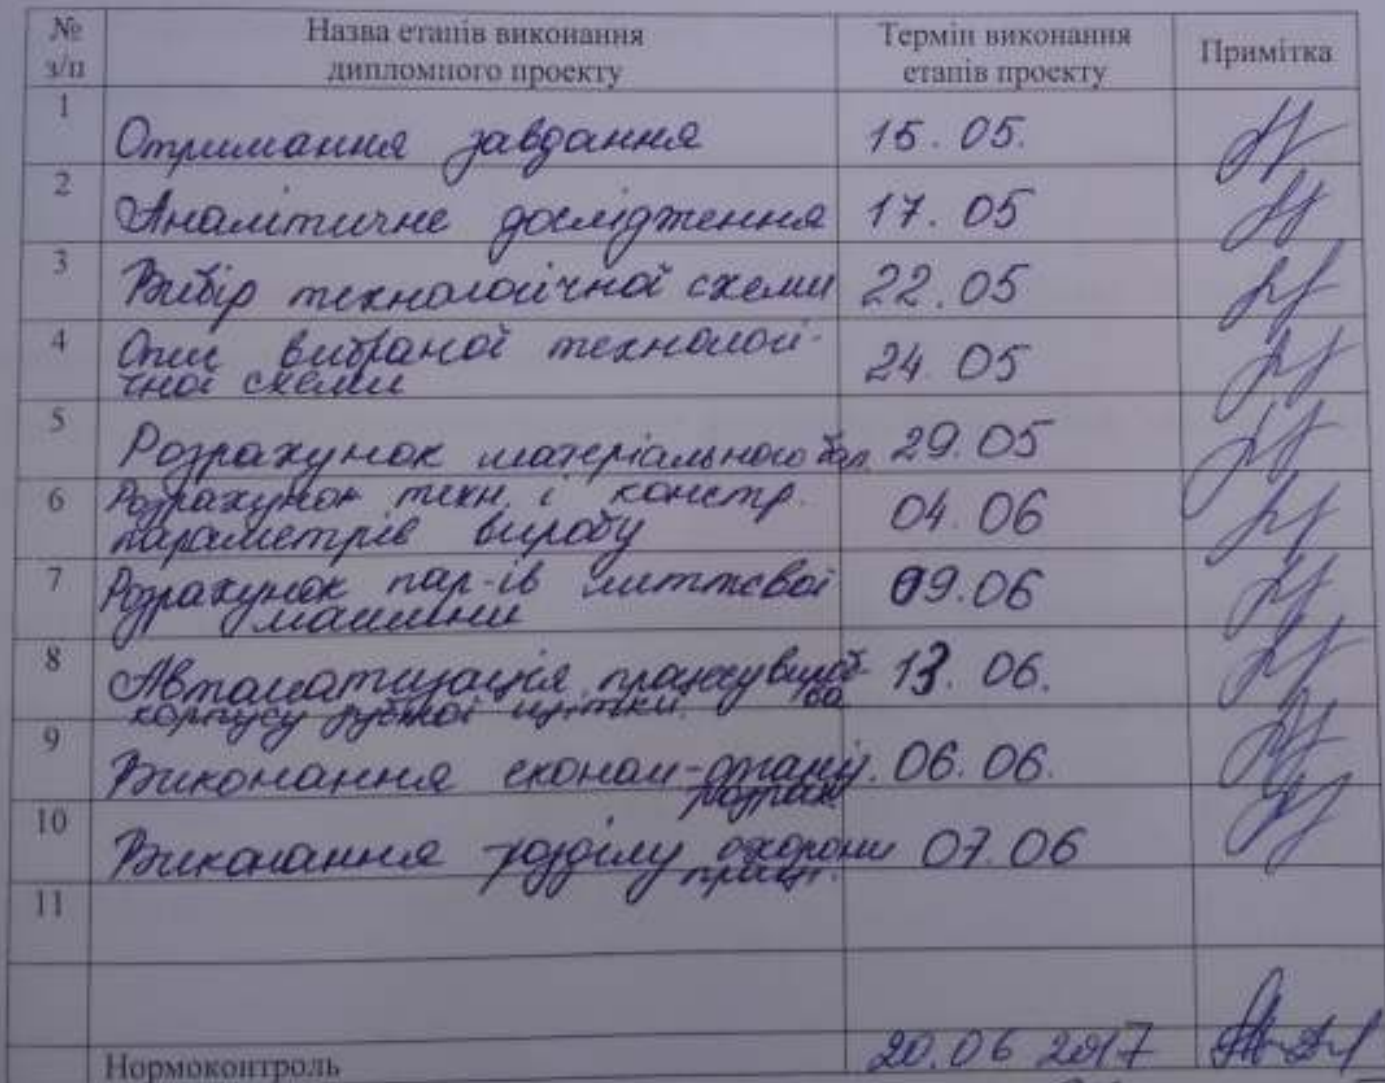 № з/п
Назва етапів виконання
дипломного проекту
Термін виконання
етапів проекту
Примітка
1 Отримання завдання 15.05.
2 Аналітичне дослідження 17.05
3 Вибір технологічної схеми 22.05
4 Опис вибраної технологі-
чної схеми 24.05
5 Розрахунок матеріального бал. 29.05
6 Розрахунок техн. і констр.
параметрів виробу 04.06
7 Розрахунок пар-ів литтєвої
машини 09.06
8 Автоматизація процесу вироб-
ва 13.06.
корпусу зубної щітки.
9 Виконання економ-орган. 06.06.
розрах
10 Виконання розділу охорони 07.06
праці.
11
Нормоконтроль 20.06 2017